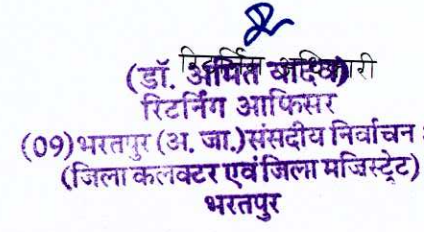 रिटर्निंग अधिकारी
(डॉ. अमित यादव)
रिटर्निंग आफिसर
(09)भरतपुर (अ. जा.)संसदीय निर्वाचन
(जिला कलक्टर एवं जिला मजिस्ट्रेट)
भरतपुर